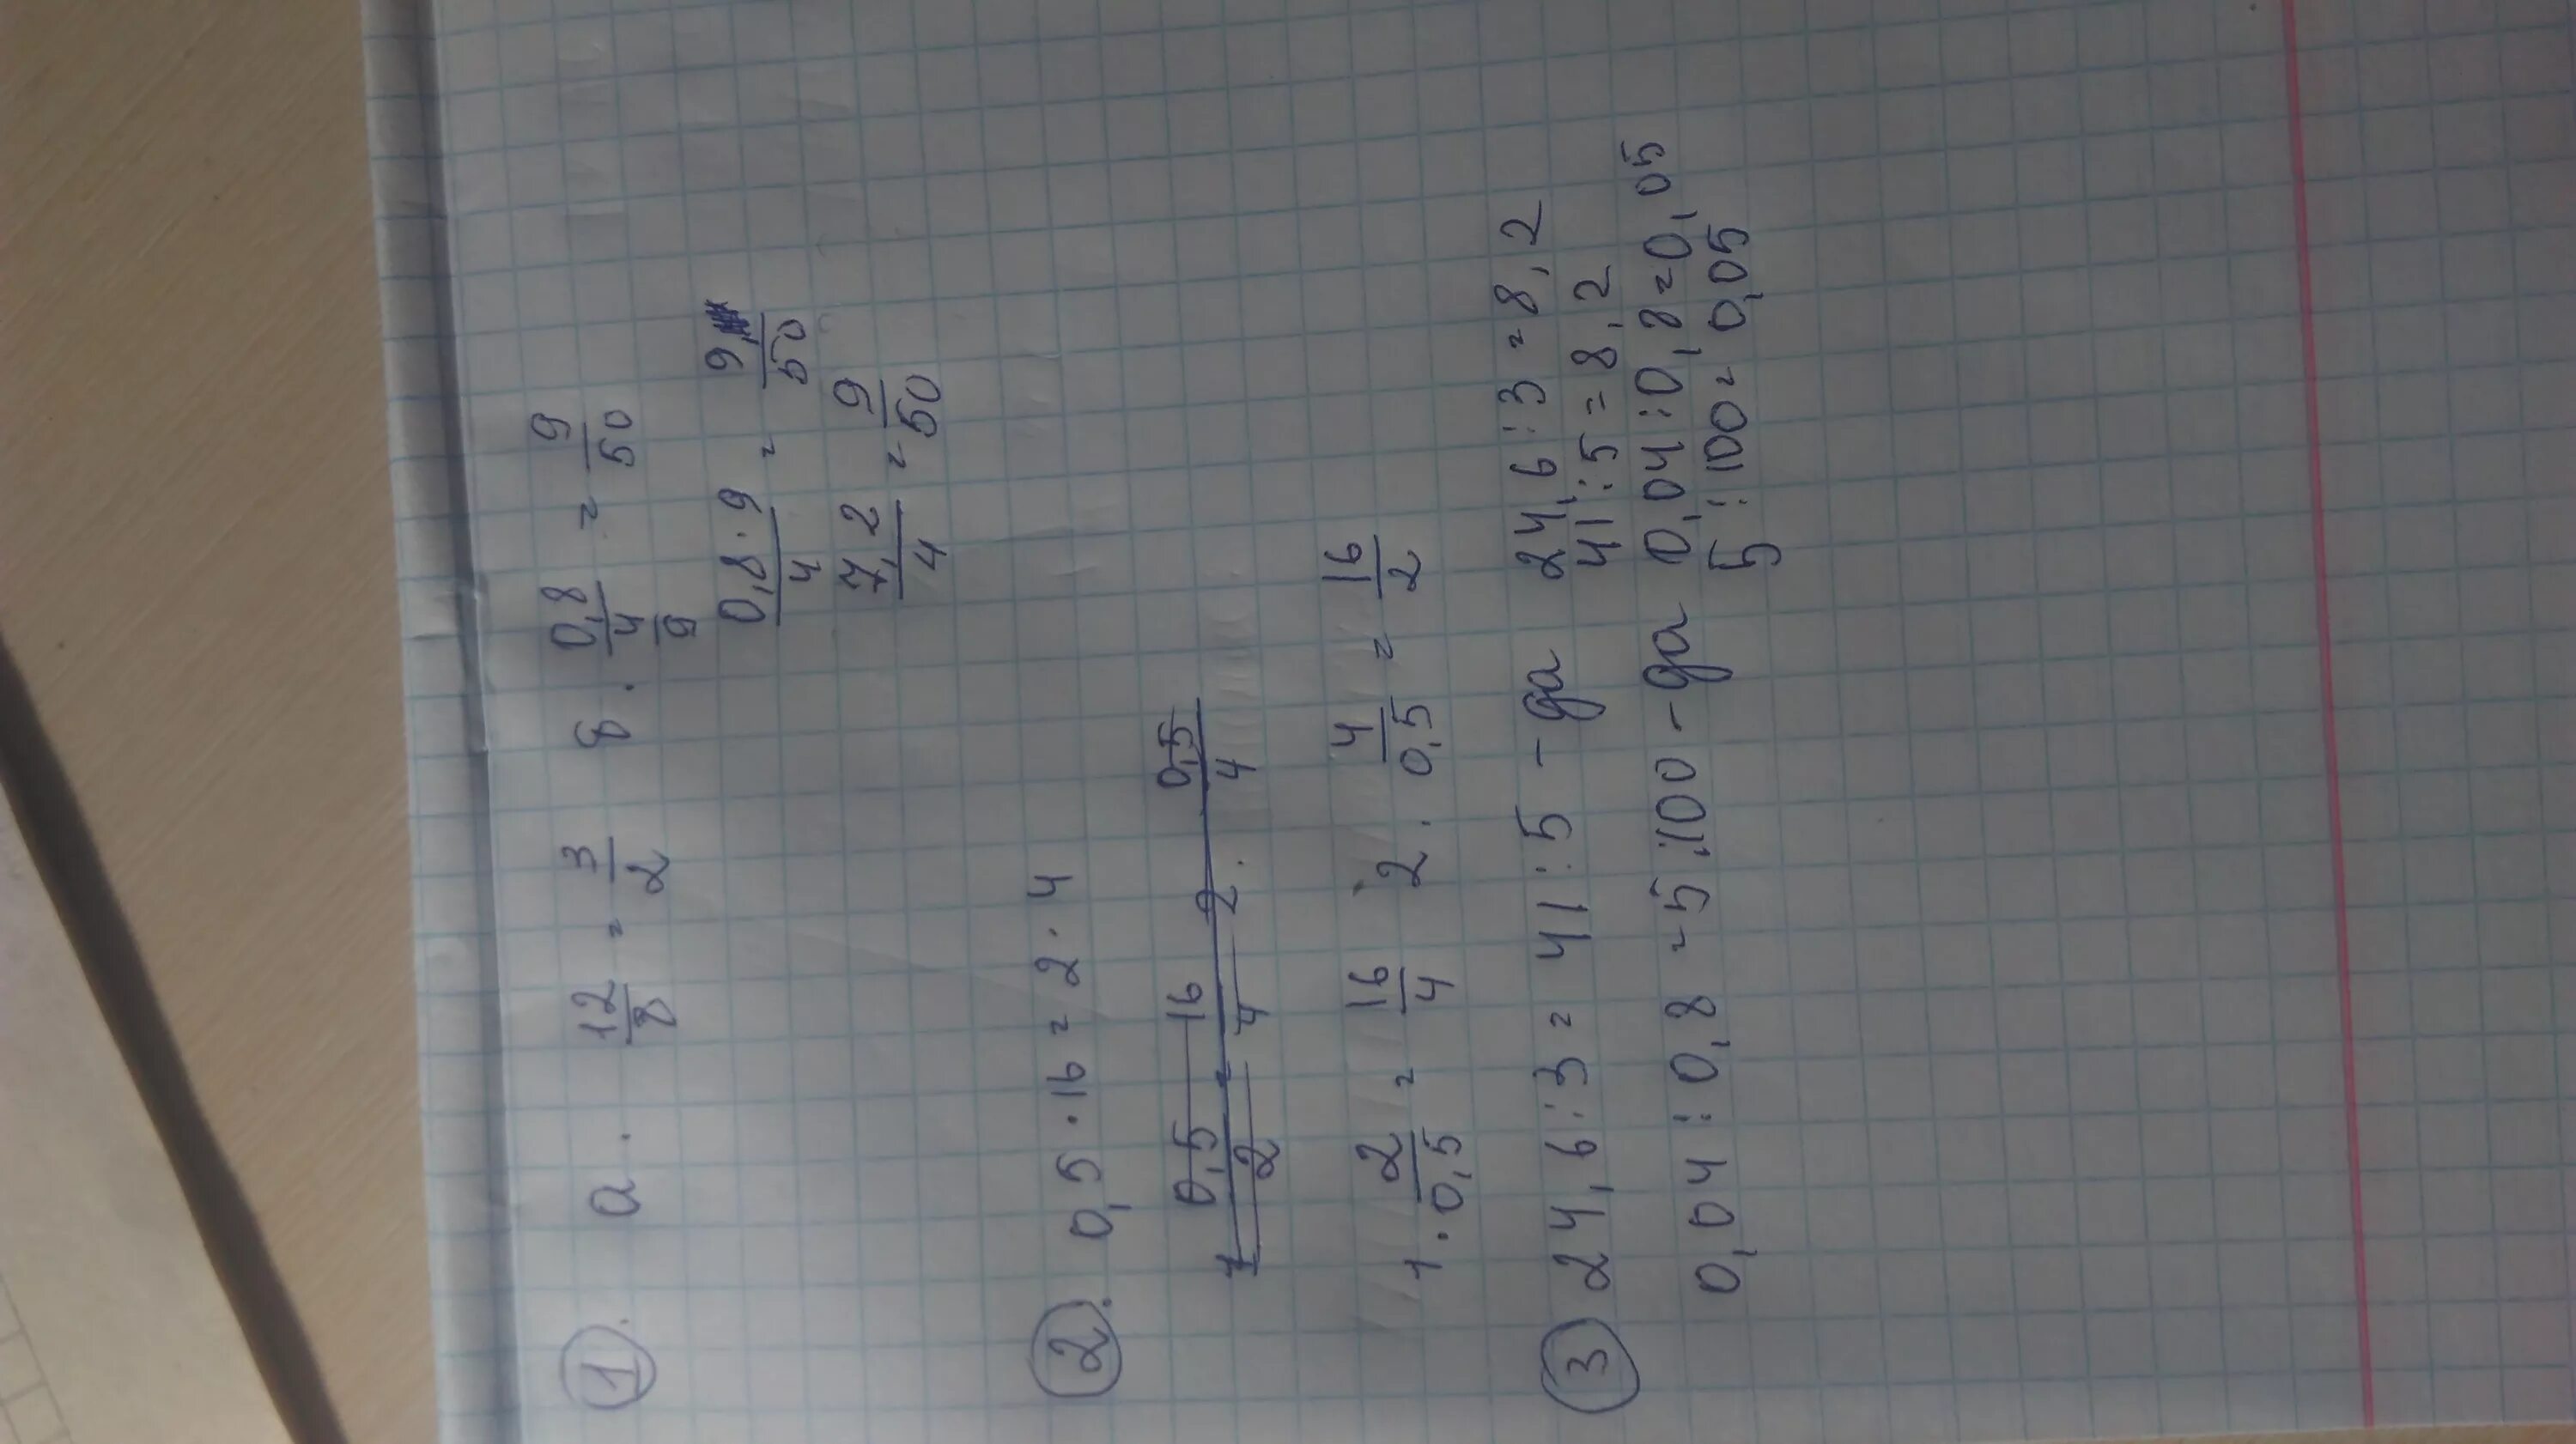 1. а. 12/8 = 3/2 в. 0,8/(4/9) = 9/50
0,8·9/4 = 9/50
7,2/4 = 9/50
2. 0,5 · 16 = 2 · 4
0,5/2 = 16/4 2. 0,5/4
1. 2/0,5 = 16/4 2. 4/0,5 = 16/2
3 24,6 : 3 = 41 : 5 - да 24,6 : 3 = 8,2
41 : 5 = 8,2
0,04 : 0,8 = 5 : 100 - да 0,04 : 0,8 = 0,05
5 : 100 = 0,05